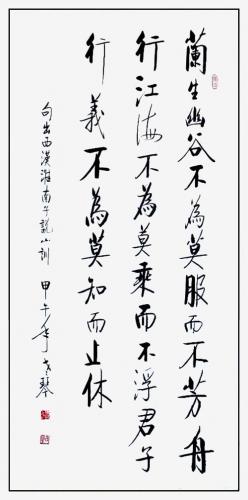 蘭生幽谷不為莫服而不芳舟
行江海不為莫乘而不浮君子
行義不為莫知而止休
句出西漢淮南子說山訓 甲午年